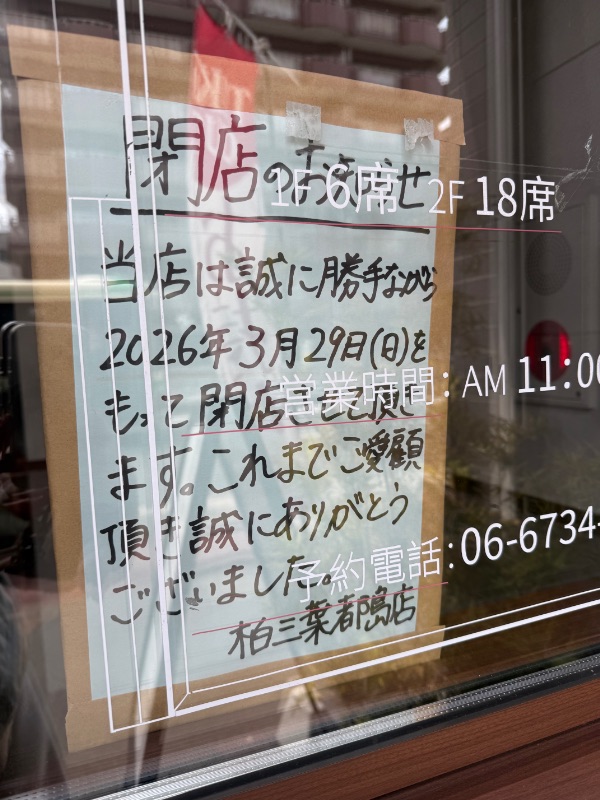 閉店のお知らせ
当店は誠に勝手ながら
2026年3月29日(日)を
もって閉店させて頂き
ます。これまでご愛顧
頂き誠にありがとう
ございました。
柏三葉都島店
1F 6席 2F 18席
営業時間: AM 11:00
予約電話: 06-6734-